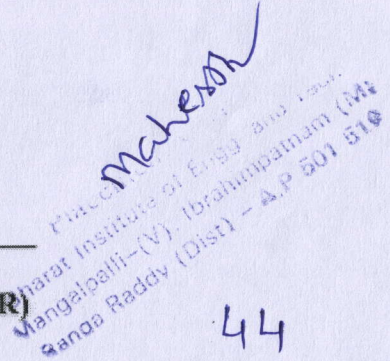 Mahesh
Bharat Institute of Engg and Tech.
Mangalpalli-(V), Ibrahimpatnam (M)
Ranga Raddy (Dist) - A.P 501 510
R)
44